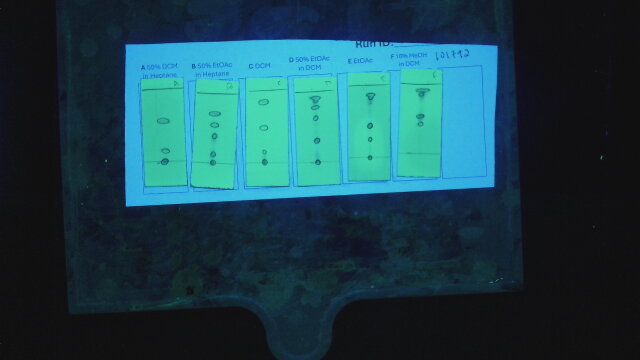 Run ID: 101792
A 50% DCM
in Heptane
B 50% EtOAc
in Heptane
C DCM
D 50% EtOAc
in DCM
E EtOAc
F 10% MeOH
in DCM